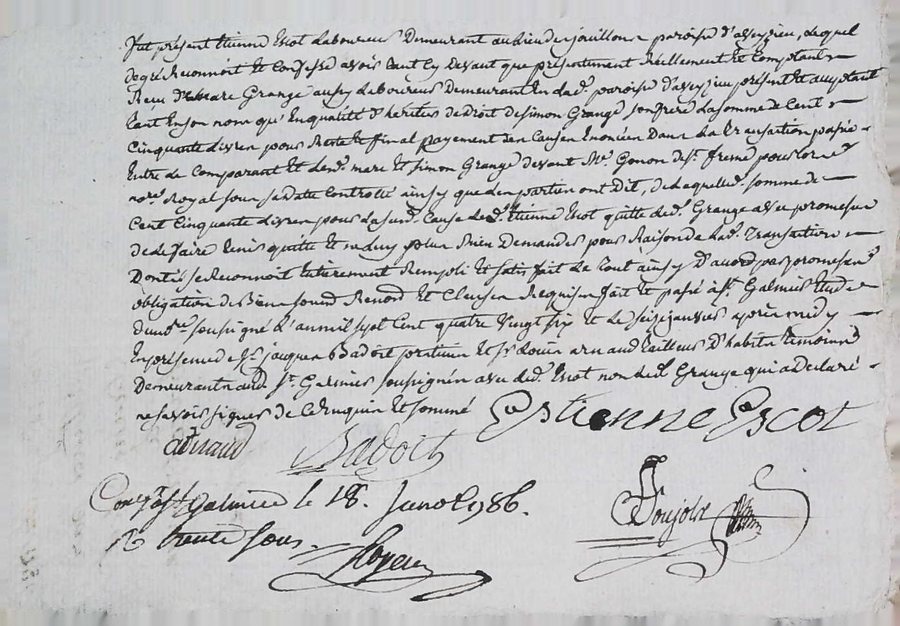 fut présent Etienne Escot Laboureur Demeurant au lieu de jouillons paroisse d'aveyzieu, Lequel
de gré Reconnoit et Confesse avoir tant Cy Devant que présentement Réellement et Comptant
Recu D'Mare Grange aussy Laboureur demeurant En lad. paroisse d'aveyzieu présent et aceptant
tant En son nom qu'En qualité d'héritier de droit de simon Grange son frère La somme de Cent
Cinquante Livres pour Reste et final payement des Causes Enoncées Dans La transaction passée
Entre Le Comparant et Lesd. mare et simon Grange devant Me Gonon
nore Royal sous sa Date Controllé ainsy que les parties ont Dit, de Laquelle somme de
Cent Cinquante Livres pour La susd. Cause Led. Etienne Escot quitte Led. Grange avec promesse
de Le faire tenir quitte et ne Luy plus Rien Demander pour Raison de Lad. Transaction
Dont il se Reconnoit Entièrement Rempli et satisfait Le tout ainsy D'acord par promesses
obligation de Biens soumd Renond et Clauses Requises fait et passé à St Galmier Etude
du nore soussigné L'an mil sept Cent quatre Vingt six et Le seize janvier après midy
En présence de Sr jacques Badoit praticien et Sr Louis arnaud tailleur D'habits temoins
Demeurant aud. St Galmier soussignés avec Led. Escot non Led. Grange qui a Déclaré
ne savoir signer de Ce Enquis et sommé Estienne Escot
arnaud Badoit
St Galmier le 18. Janv 1786.
R trente sous.